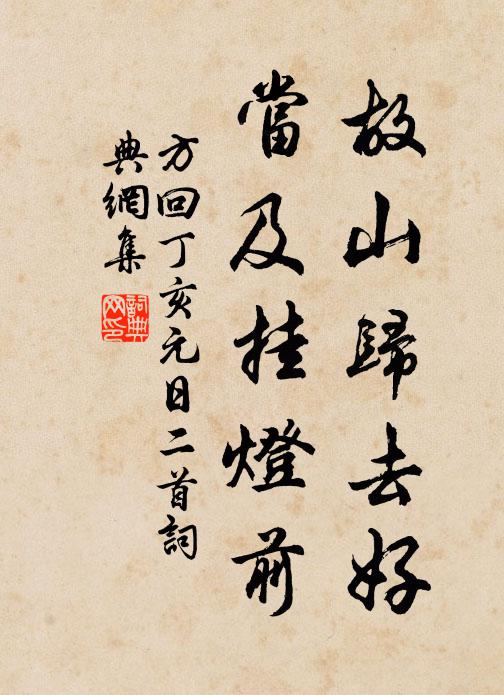 故山歸去好
當及挂燈前
方回丁亥元日二首詞
典網集
詞典網印